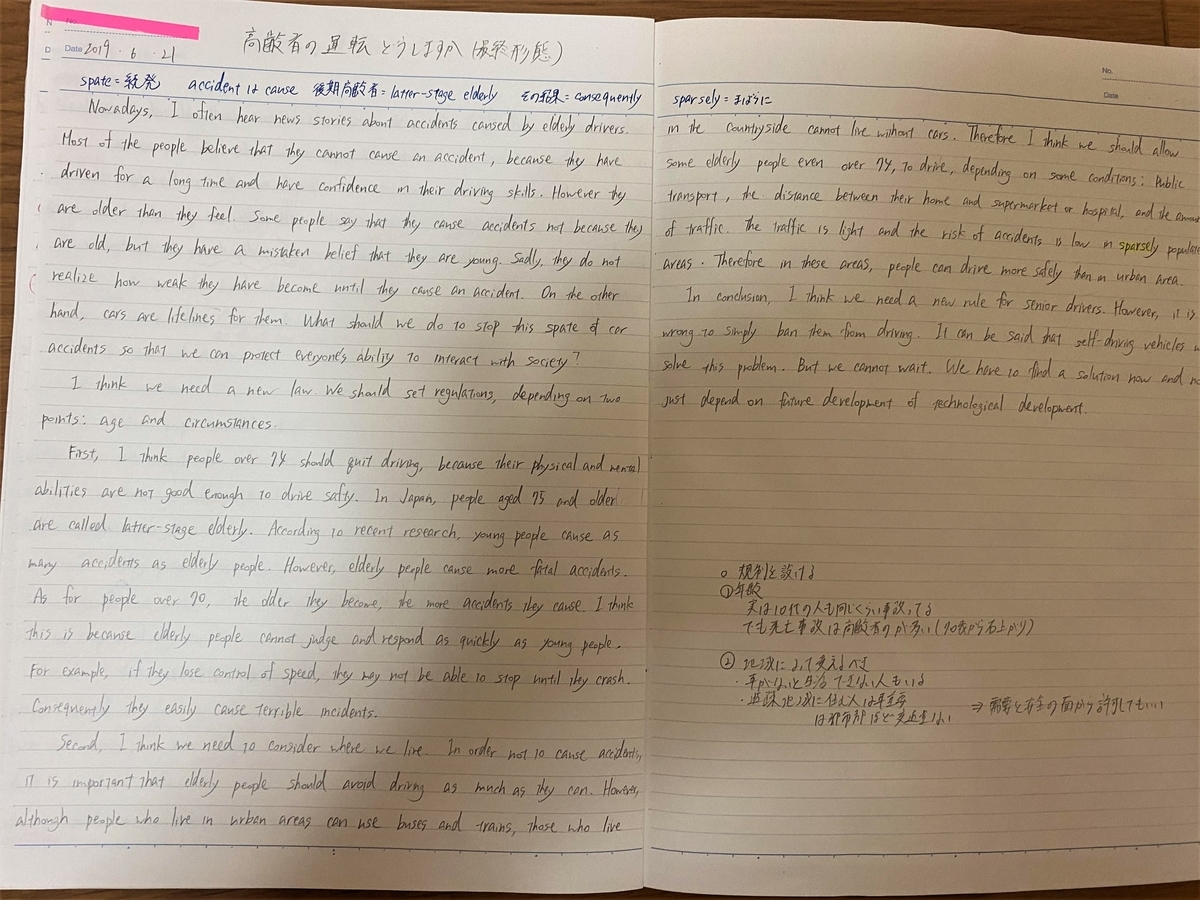 No.
Date 2019 . 6 . 21
高齢者の運転どうしますか(最終形態)
spate = 続発 accident は cause 後期高齢者 = latter-stage elderly その結果 = consequently
Nowadays, I often hear news stories about accidents caused by elderly drivers.
Most of the people believe that they cannot cause an accident, because they have
driven for a long time and have confidence in their driving skills. However they
are older than they feel. Some people say that they cause accidents not because they
are old, but they have a mistaken belief that they are young. Sadly, they do not
realize how weak they have become until they cause an accident. On the other
hand, cars are lifelines for them. What should we do to stop this spate of car
accidents so that we can protect everyone's ability to interact with society?
I think we need a new law. We should set regulations, depending on two
points: age and circumstances.
First, I think people over 74 should quit driving, because their physical and mental
abilities are not good enough to drive safty. In Japan, people aged 75 and older
are called latter-stage elderly. According to recent research, young people cause as
many accidents as elderly people. However, elderly people cause more fatal accidents.
As for people over 70, the older they become, the more accidents they cause. I think
this is because elderly people cannot judge and respond as quickly as young people.
For example, if they lose control of speed, they may not be able to stop until they crash.
Consequently they easily cause terrible incidents.
Second, I think we need to consider where we live. In order not to cause accidents,
it is important that elderly people should avoid driving as much as they can. However,
although people who live in urban areas can use buses and trains, those who live
No.
Date
sparsely = まばらに
in the countryside cannot live without cars. Therefore I think we should allow
some elderly people even over 74, to drive, depending on some conditions: Public
transport, the distance between their home and supermarket or hospital, and the amoun
of traffic. The traffic is light and the risk of accidents is low in sparsely populate
areas. Therefore in these areas, people can drive more safely than in urban area.
In conclusion, I think we need a new rule for senior drivers. However, it is
wrong to simply ban them from driving. It can be said that self-driving vehicles w
solve this problem. But we cannot wait. We have to find a solution now and no
just depend on future development of technological development.
○ 規制を設ける
①年齢
実は10代の人も同じくらい事故ってる
でも死亡事故は高齢者のが多い(70歳から右上がり)
② 地域によって変えるべき
・車がないと生活できない人もいる
・過疎地域に住む人は車必要
は都市部ほど交通量ない ⇒ 需要と安全の面から許可してもいい